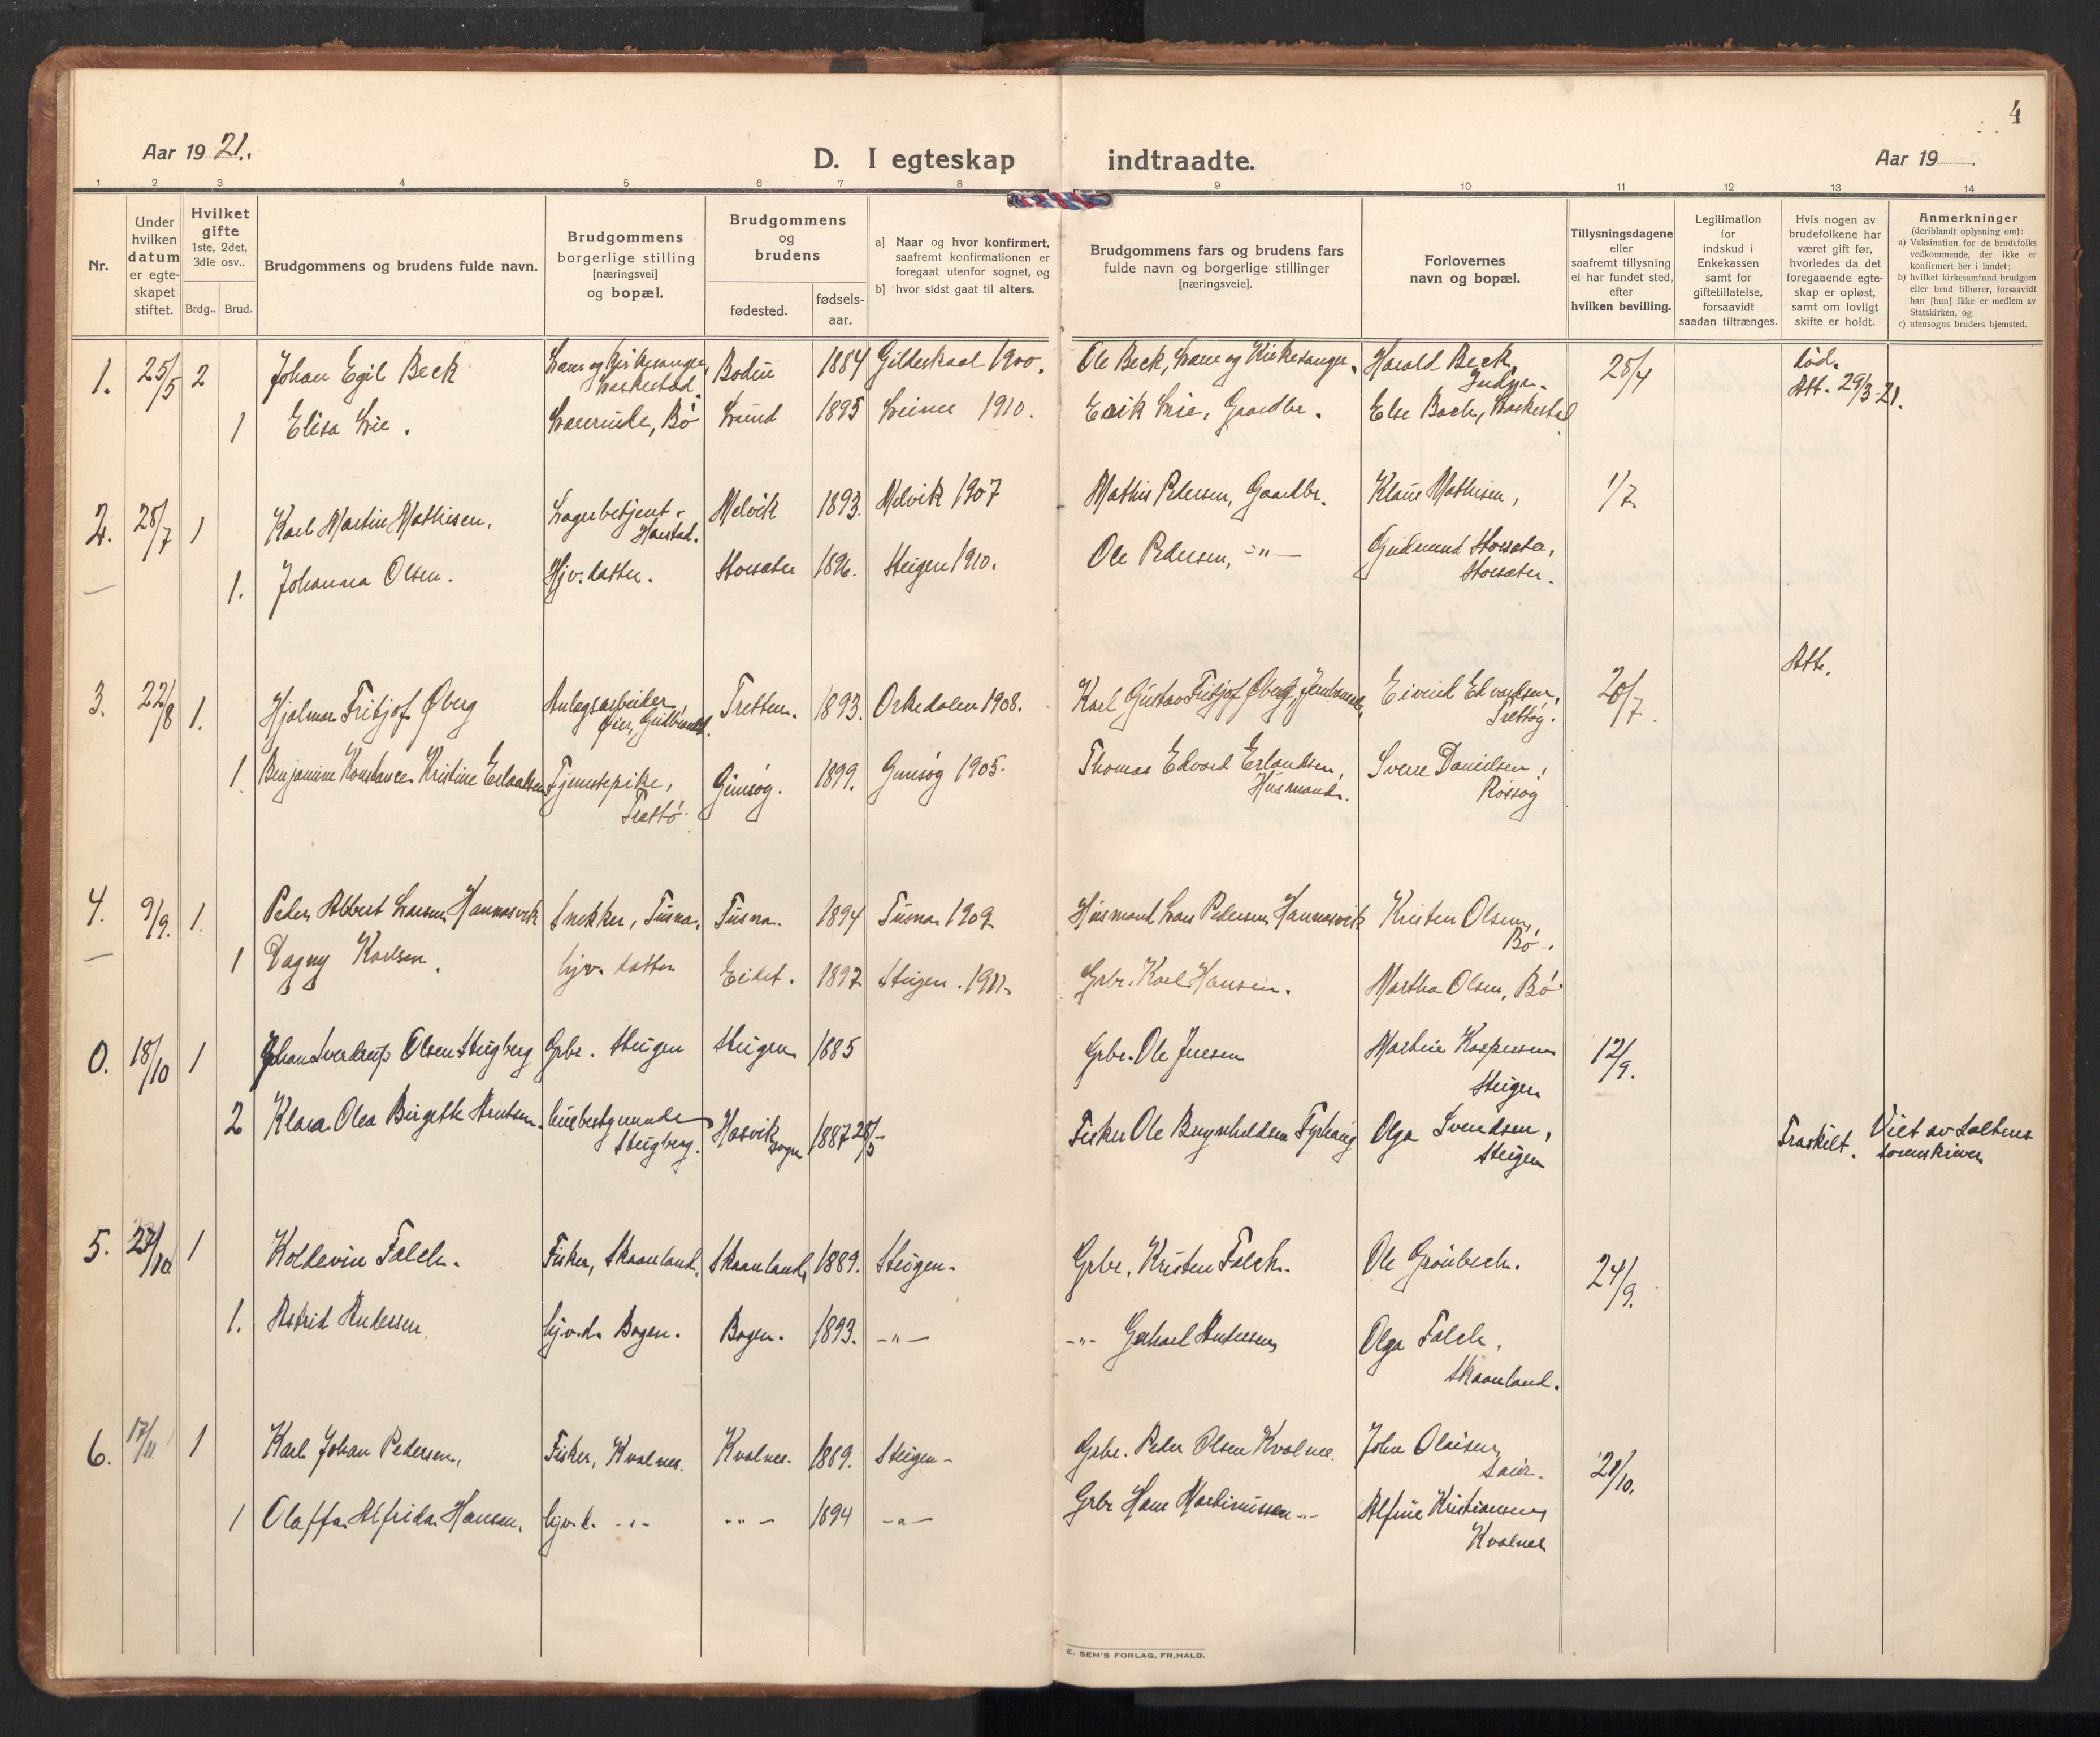 4
Aar 19 21.
D. I egteskap indtraadte.
Aar 19
1 2 3 4 5 6 7 8 9 10 11 12 13 14
Nr.
Under
hvilken
datum
er egte-
skapet
stiftet.
Hvilket
gifte
1ste, 2det,
3die osv..
Brdg.. Brud.
Brudgommens og brudens fulde navn.
Brudgommens
borgerlige stilling
[næringsvei]
og bopæl.
Brudgommens
og
brudens
fødested.
fødsels-
aar.
a] Naar og hvor konfirmert,
saafremt konfirmationen er
foregaat utenfor sognet, og
b] hvor sidst gaat til alters.
Brudgommens fars og brudens fars
fulde navn og borgerlige stillinger
[næringsveie].
Forlovernes
navn og bopæl.
Tillysningsdagene
eller
saafremt tillysning
ei har fundet sted,
efter
hvilken bevilling.
Legitimation
for
indskud i
Enkekassen
samt for
giftetillatelse,
forsaavidt
saadan tiltrænges.
Hvis nogen av
brudefolkene har
været gift før,
hvorledes da det
foregaaende egte-
skap er opløst,
samt om lovligt
skifte er holdt.
Anmerkninger
(deriblandt oplysning om):
a) Vaksination for de brudefolks
vedkommende, der ikke er
konfirmert her i landet;
b) hvilket kirkesamfund brudgom
eller brud tilhører, forsaavidt
han [hun] ikke er medlem av
Statskirken, og
c) utensogns bruders hjemsted.
1. 25/5 2 Johan Egil Beck Lærer og Kirkesanger, Bodin 1884 Gildeskaal 1900. Ole Beck, Lærer og Kirkesanger. Harald Beck, 28/4 død.
Leskestad. Att. 29/3-21.
1 Elisa Lie. Lærerinde, Bø Lund 1895 Leines 1910. Erik Lie, Gaardbr. Else Bach,
2. 28/7 1 Karl Martin Mathisen. Lagerbetjent. Melvik 1893. Melvik 1907 Mathis Pedersen, Gaardbr. Klaus Mathisen, 1/7
Harstad.
1. Johanna Olsen. Gjv. datter. Storsæter 1896. Steigen 1910. Ole Pedersen, -"- Gudmund Storsæter,
Storsæter.
Att.
3. 22/8 1. Hjalmar Fritjof Øberg Anlegsarbeider Tretten. 1893. Orkedalen 1908. Karl Gustav Fritjof Øberg, Eivind Edvardsen, 20/7.
1 Benjamine Konstance Kristine Erlandsen Tjenestepike, Gimsøy. 1899. Gimsøy 1905. Thomas Edvard Erlandsen, Sverre Danielsen,
Husmand.
4. 9/9. 1. Peder Albert Larsen Hannasvik Snekker, Tusna. Tusna. 1894 Tusna 1909 Husmand Lars Pedersen Hannasvik Kristen Olsen,
Bø.
1 Dagny Karlsen. Gjv. datter Eidet. 1897 Steigen. 1911. Grbr. Karl Hansen. Martha Olsen, Bø
0. 18/10 1 Johan Sverdrup Olsen Steigberg Grbr. Steigen Steigen 1885 Grbr. Ole Jensen Martin Kaspersen 12/9.
Steigen
2 Klara Olea Birgitte Knutsen. husbestyrerinde Hasvik 1887 28/5 Fisker Ole Brynhildsen Olga Svendsen, Fraskilt. Viet av Saltens
Steigberg. sogn Steigen sorenskriver
5. 27/10 1 Koldevin Falch. Fisker, Skaanland. Skaanland 1889. Steigen. Grbr. Kristen Falch. Ole Grønbech. 24/9.
1. Astrid Andersen. Gjv.d. Bogen. Bogen. 1893. -"- -"- Gerhard Andersen Olga Falch,
Skaanland.
6. 17/11 1 Karl Johan Pedersen, Fisker, Kvalnes. Kvalnes. 1889. Steigen - Grbr. Peder Olsen Kvalnes. John Olaisen, 28/10.
1 Olaffa Alfrida Hansen. Gjv.d. -"- -"- 1894 -"- Grbr Hans Martinussen -"- Alfine Kristiansen,
Kvalnes
E. SEM'S FORLAG, FR.HALD.